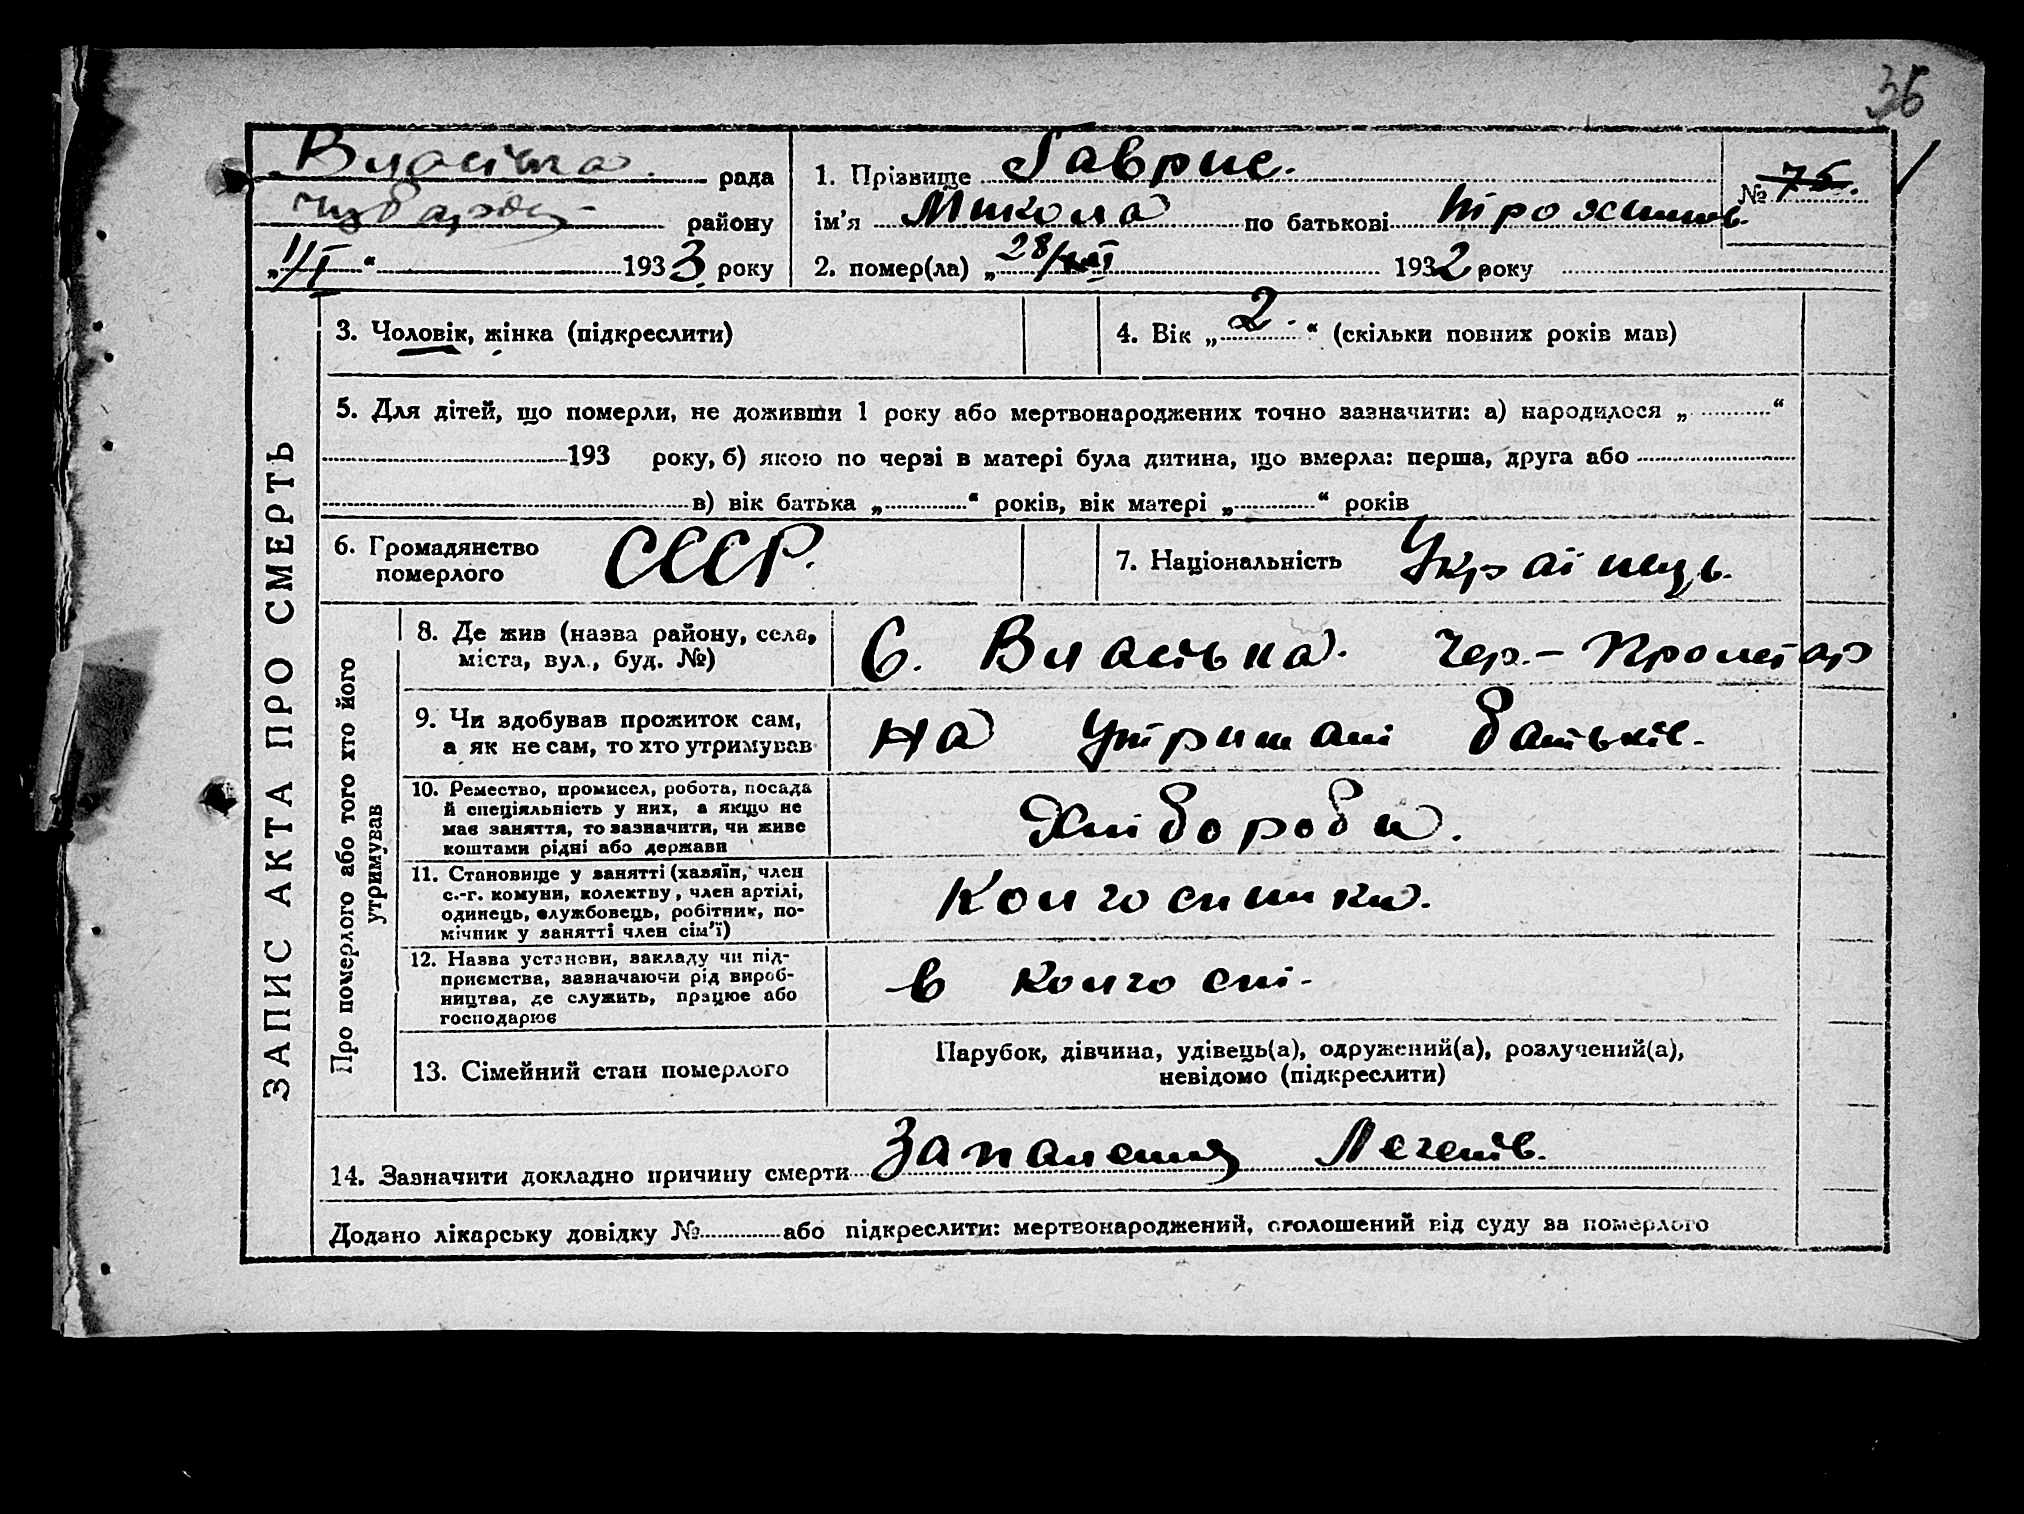 36
рада
району
„1/I“ 1933 року
1. Прізвище Гаврис.
ім’я Микола по батькові Трохимів.
2. помер(ла) „28/ 1932 року
№ 75.
ЗАПИС АКТА ПРО СМЕРТЬ
3. Чоловік, жінка (підкреслити)
4. Вік „2.“ (скільки повних років мав)
5. Для дітей, що померли, не доживши 1 року або мертвонароджених точно зазначити: а) народилося „ “
193 року, б) якою по черзі в матері була дитина, що вмерла: перша, друга або
в) вік батька „ “ років, вік матері „ “ років
6. Громадянство
померлого
СССР.
7. Національність Українць.
Про померлого або того хто його
утримував
8. Де жив (назва району, села,
міста, вул., буд. №)
С. Власівка. Чер.-Пролетар
9. Чи здобував прожиток сам,
а як не сам, то хто утримував
на утримані батьків.
10. Ремество, промисел, робота, посада
й спеціяльність у них, а якщо не
має заняття, то зазначити, чи живе
коштами рідні або держави
Хлібороби.
11. Становище у занятті (хазяїн, член
с.-г. комуни, колектву, член артілі,
одинець, службовець, робітник, по-
мічник у занятті член сім’ї)
Колгосники.
12. Назва установи, закладу чи під-
приємства, зазначаючи рід вироб-
ництва, де служить, працює або
господарює
в колгоспі.
13. Сімейний стан померлого
Парубок, дівчина, удівець(а), одружений(а), розлучений(а),
невідомо (підкреслити)
14. Зазначити докладно причину смерти Запалення Легенів.
Додано лікарську довідку № або підкреслити: мертвонароджений, оголошений від суду за померлого